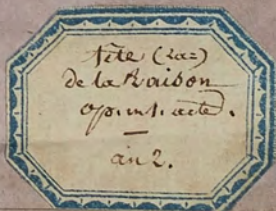 fête (La=)
de la Raison
op. in 1. acte.
an 2.